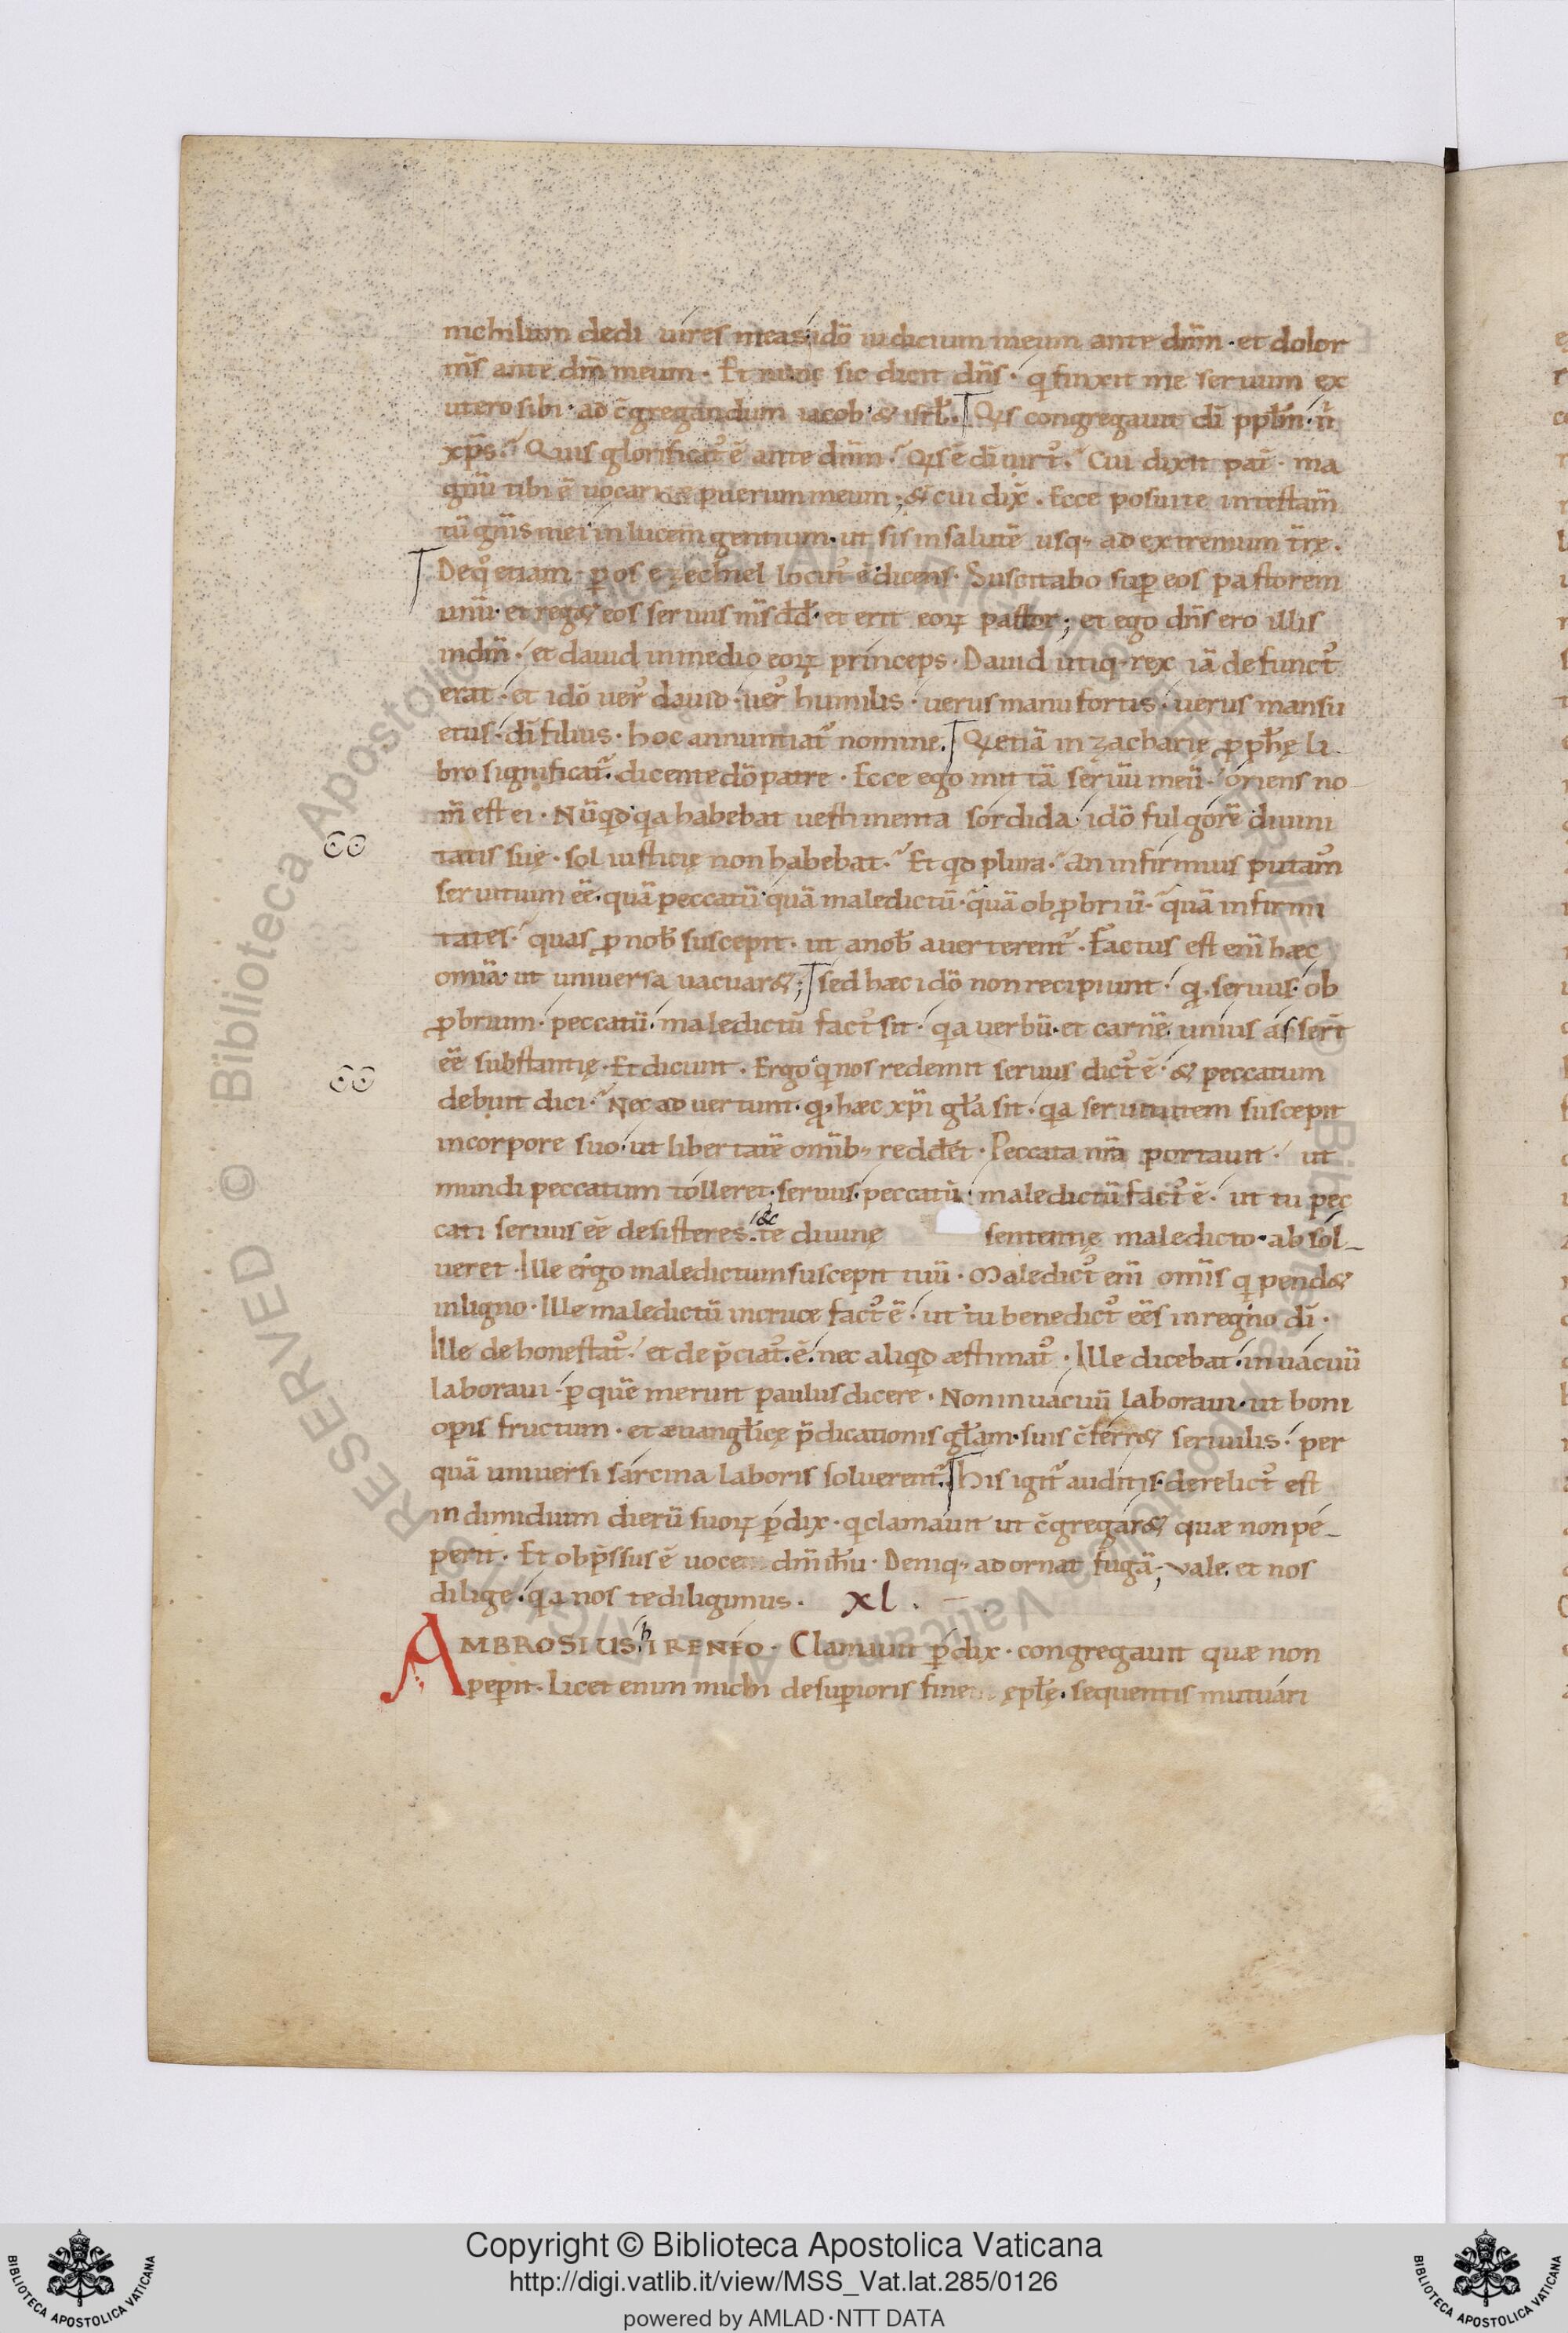 nichilum dedi uires meas idō iudicium meum ante dn̄m · et dolor
m̄s ante dm̄ meum · Et nunc sic dicit dn̄s · q finxit me seruum ex
utero sibi · ad c̄gregandum iacob & isrl̄. Qs congregauit dī ppl̄m · n̄
xp̄s. Quis glorificat᷒ ē ante dn̄m. Qs ē dī uirt᷒. Cui dixit pat̄ · ma
gnū tibi ē uocari te puerum meum ; & cui dix̄ . Ecce posui te in testam̄
tū gn̄is mei in lucem gentium · ut sis in salutē usq· ad extremum t̄rę .
De q᷒ etiam · ꝑ os ezechiel locut᷒ ē dicens · Suscitabo suꝑ eos pastorem
unū · et reg& eos seruus m̄s dd̄ · et erit eoꝝ pastor ; et ego dn̄s ero illis
in dm̄ · et dauid in medio eoꝝ princeps · Dauid utiq· rex iā defunct᷒
erat · et idō uer᷒ dauid · uer᷒ humilis · uerus manu fortis · uerus mansu
etus · dī filius · hoc annuntiat᷒ nomine. Q etiā in zacharię ꝓph̄ę li
bro significat᷒ · dicente dō patre · Ecce ego mittā seruū meū · oriens no
m̄ est ei · Nūqd qa habebat uestimenta sordida · idō fulgorē diuini
tatis suę · sol iustitię non habebat. Et qd plura. An infirmius putam᷒
seruitium eē. quā peccatū quā maledictū · quā obꝓbriū · quā infirmi
tates · quas ꝓ nob̄ suscepit · ut a nob̄ auerterent᷒ . Factus est enī hæc
omīa · ut uniuersa uacuar& ; sed hæc idō non recipiunt · q · seruus · ob
ꝓbrium · peccatū · maledictū fact᷒ sit · qa uerbū · et carnē unius asser̄t
eē substantię · Et dicunt . Ergo q nos redemit seruus dict᷒ ē · & peccatum
debuit dici · Nec aduertunt · q · hæc xp̄i gl̄a sit · qa seruitutem suscepit
in corpore suo · ut libertatē omīb· redd̄et · Peccata nr̄a portauit · ut
mundi peccatum tolleret · seruus · peccatū · maledictū fact᷒ ē · ut tu pec
cati seruus eē desisteres · & te diuinę sententię maledicto · absol-
ueret · Ille ergo maledictum suscepit tuū · Maledict᷒ enī omīs q pend&
in ligno · Ille maledictū in cruce fact᷒ ē · ut tu benedict᷒ eēs in regno dī ·
Ille dehonestat᷒ · et dep̄ciat᷒ · ē · nec aliqd æstimat᷒ · Ille dicebat · in uacuū
laboraui · ꝑ quē meruit paulus dicere · Non in uacuū laboraui · ut boni
opis fructum · et æuangl̄icę p̄dicationis gl̄am · suis c̄ferr& seruulis · per
quā uniuersi sarcina laboris soluerent᷒. His igit᷒ auditis · derelict᷒ est
in dimidium dierū suoꝝ ꝑdix · q clamauit ut c̄gregar& quæ non pe-
perit · Et obp̄ssus ē uoce dn̄i ih̄u · Deniq· adornat fugā ; vale · et nos
dilige · qa nos te diligimus · xl .
AMBROSIUS IRENEO · Clamauit ꝑdix · congregauit quæ non
peꝑit · Licet enim michi de suꝑioris fine ępl̄ę · sequentis mutuari
RESERVED © Biblioteca Apostolica Vaticana
Copyright © Biblioteca Apostolica Vaticana
http://digi.vatlib.it/view/MSS_Vat.lat.285/0126
powered by AMLAD·NTT DATA
BIBLIOTECA APOSTOLICA VATICANA
BIBLIOTECA APOSTOLICA VATICANA